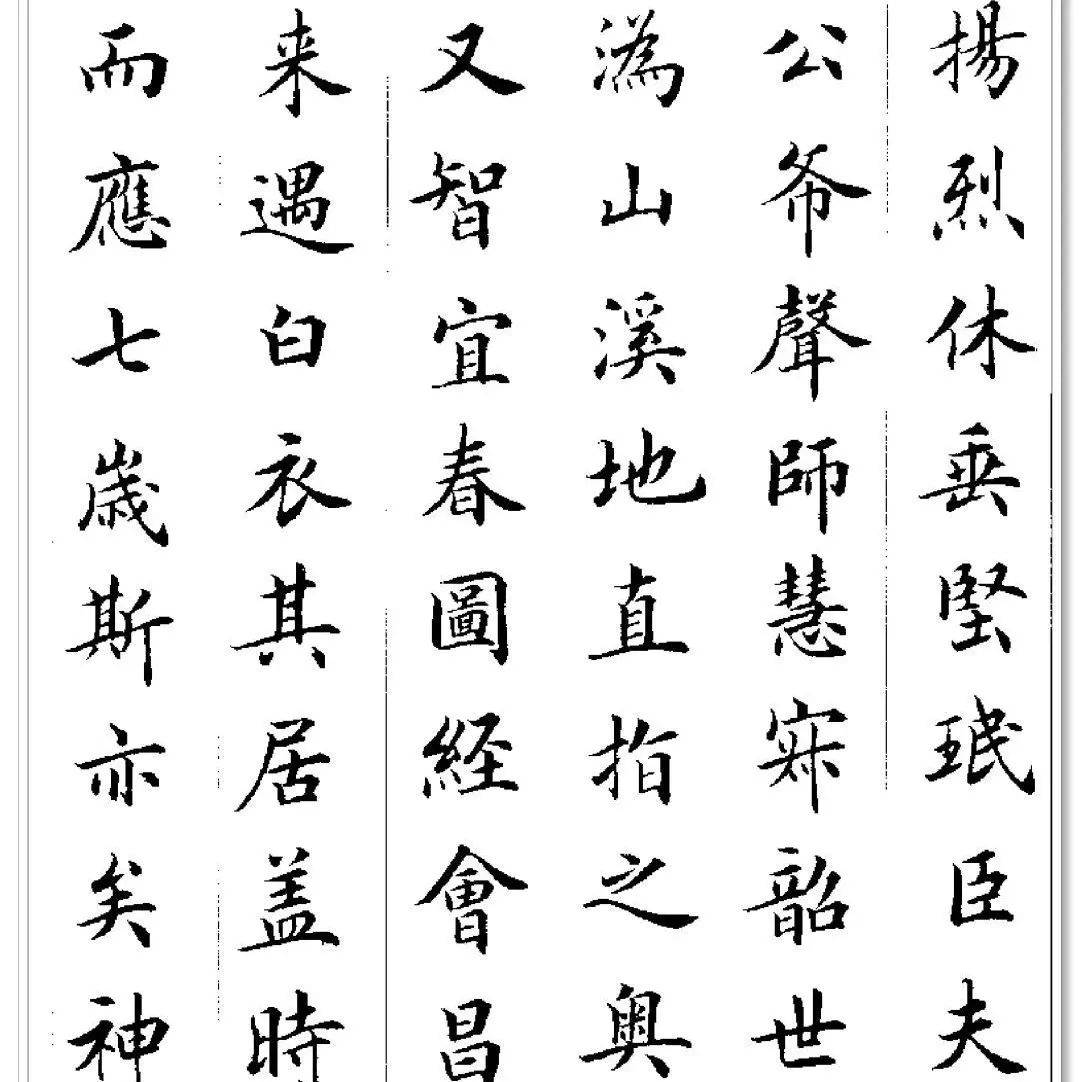 揚烈休垂堅珉臣夫
公希聲師慧寂韶世
潙山溪地直指之奥
又智宜春圖経會昌
来遇白衣其居盖時
而應七歳斯亦矣神